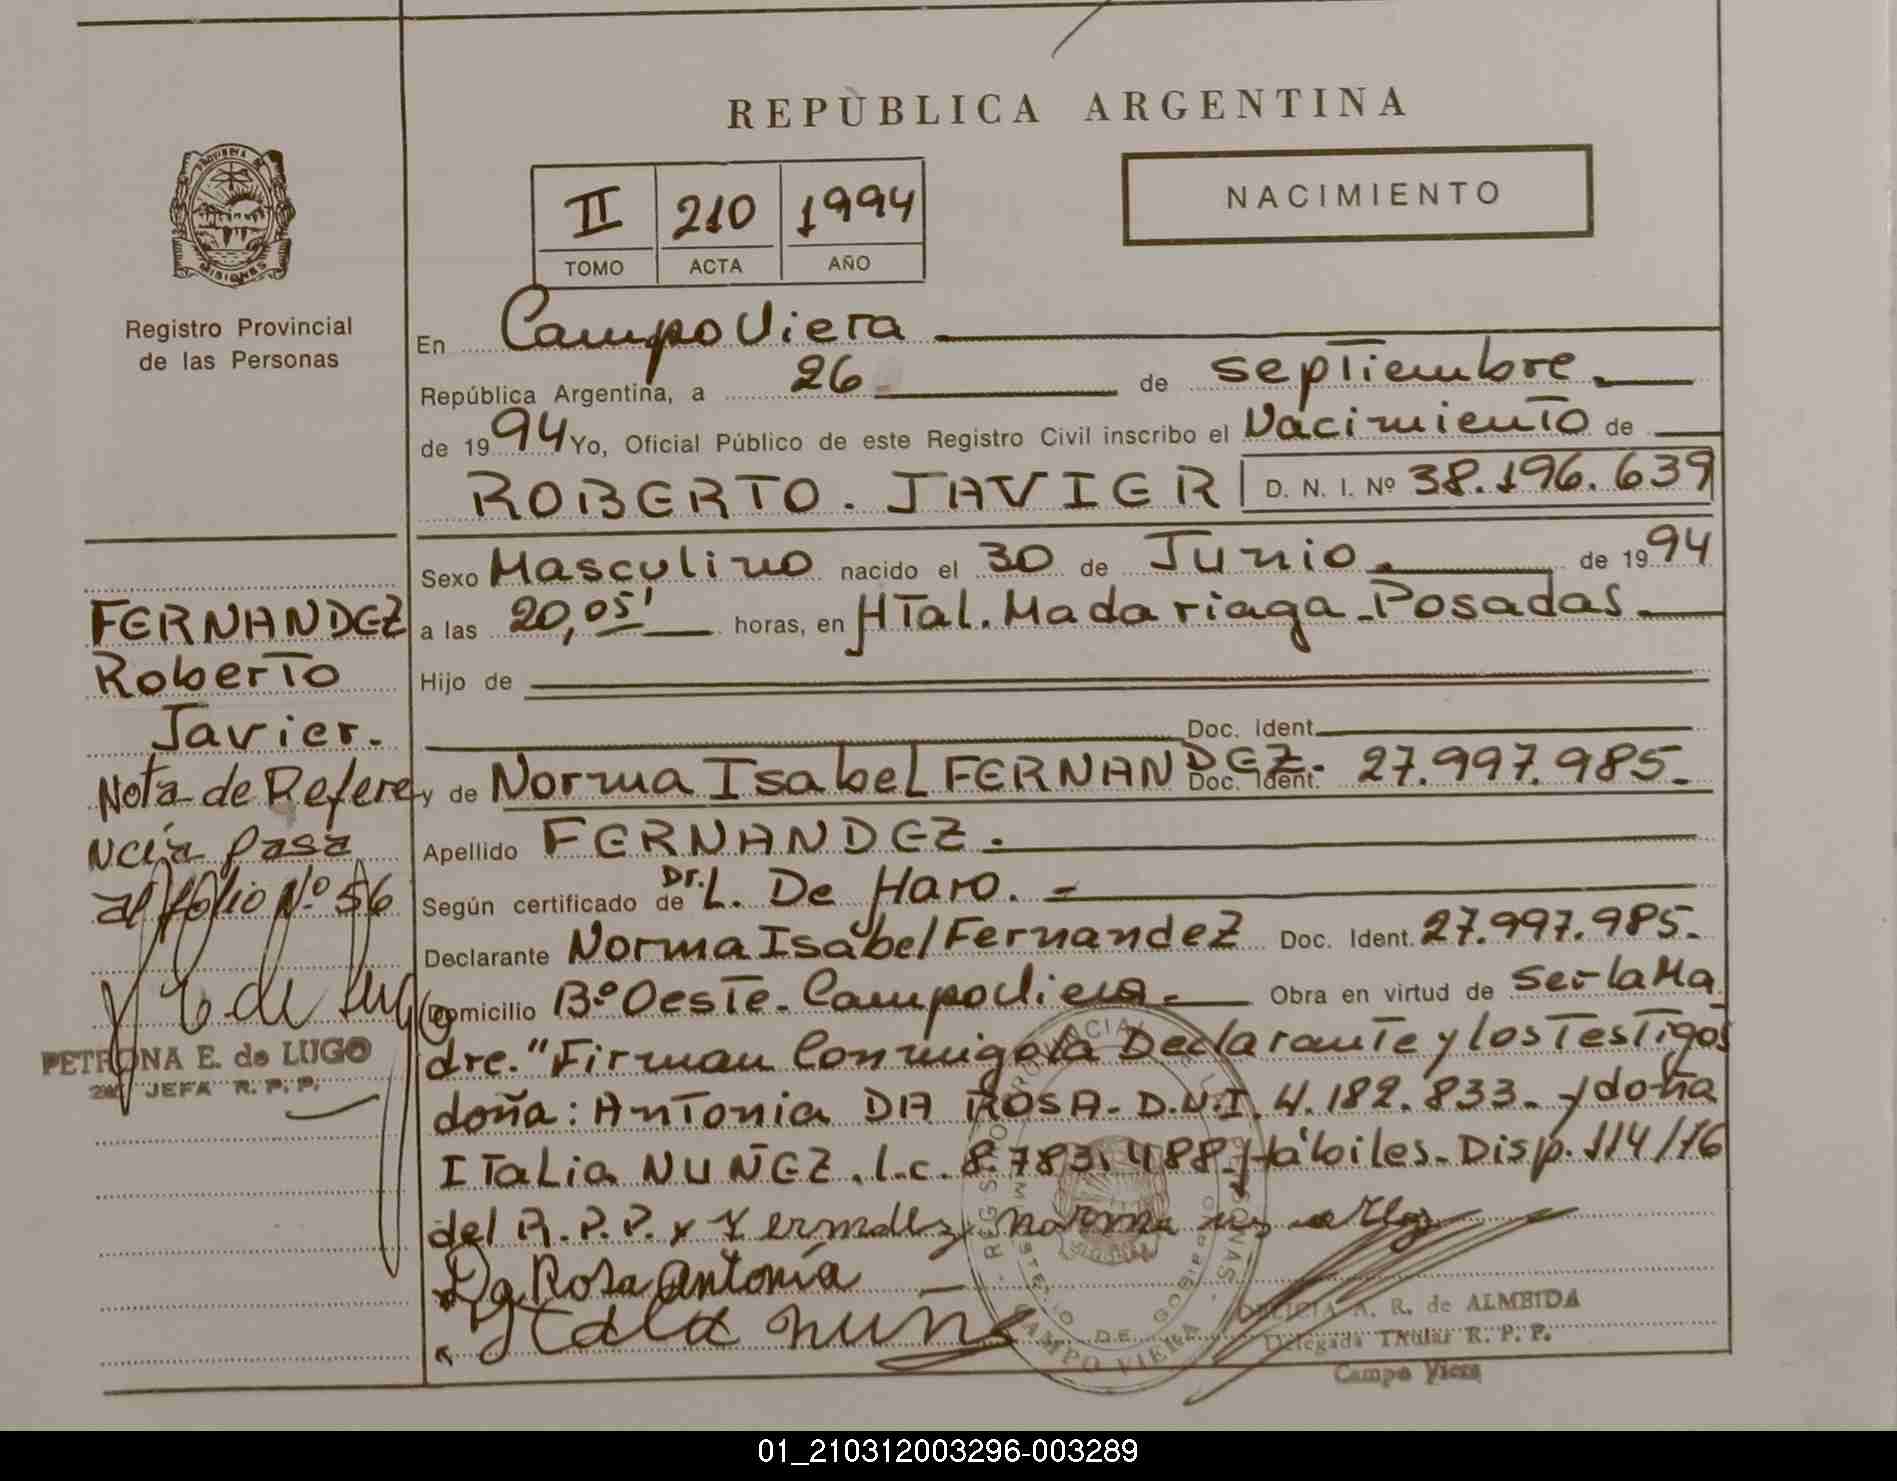 REPÙBLICA ARGENTINA
II 210 1994
TOMO ACTA AÑO
NACIMIENTO
PROVINCIA DE
MISIONES
Registro Provincial
de las Personas
En Campo Viera
República Argentina, a 26 de septiembre.
de 1994 Yo, Oficial Público de este Registro Civil inscribo el Nacimiento de
ROBERTO. JAVIER D. N. I. Nº 38.196.639
Sexo Masculino nacido el 30 de Junio. de 1994
a las 20,05' horas, en HTal. Madariaga-Posadas.
Hijo de
Doc. Ident.
y de Norma Isabel FERNANDEZ. Doc. Ident. 27.997.985.
Apellido FERNANDEZ.
Según certificado de Dr. L. De Haro. =
Declarante Norma Isabel Fernandez Doc. Ident. 27.997.985.
Domicilio Bº Oeste. Campo Viera. Obra en virtud de ser la Ma
dre." Firman Conmigo la Declarante y los Testigos
doña: Antonia DA ROSA. D.N.I. 4.182.833. y doña
ITaLia NUÑEZ. l.c. 8.783.488. Hábiles. Disp. 114/76
del R.P.P. x
Da Rosa Antonia
Itala nuñe
FERNANDEZ
Roberto
Javier.
Nota de Refere
ncia pasa
al folio Nº 56
PETRONA E. de LUGO
JEFA R. P. P.
CAMPO VIERA
A. R. de ALMEIDA
Delegada Titular R. P. P.
Campo Viera
01_210312003296-003289